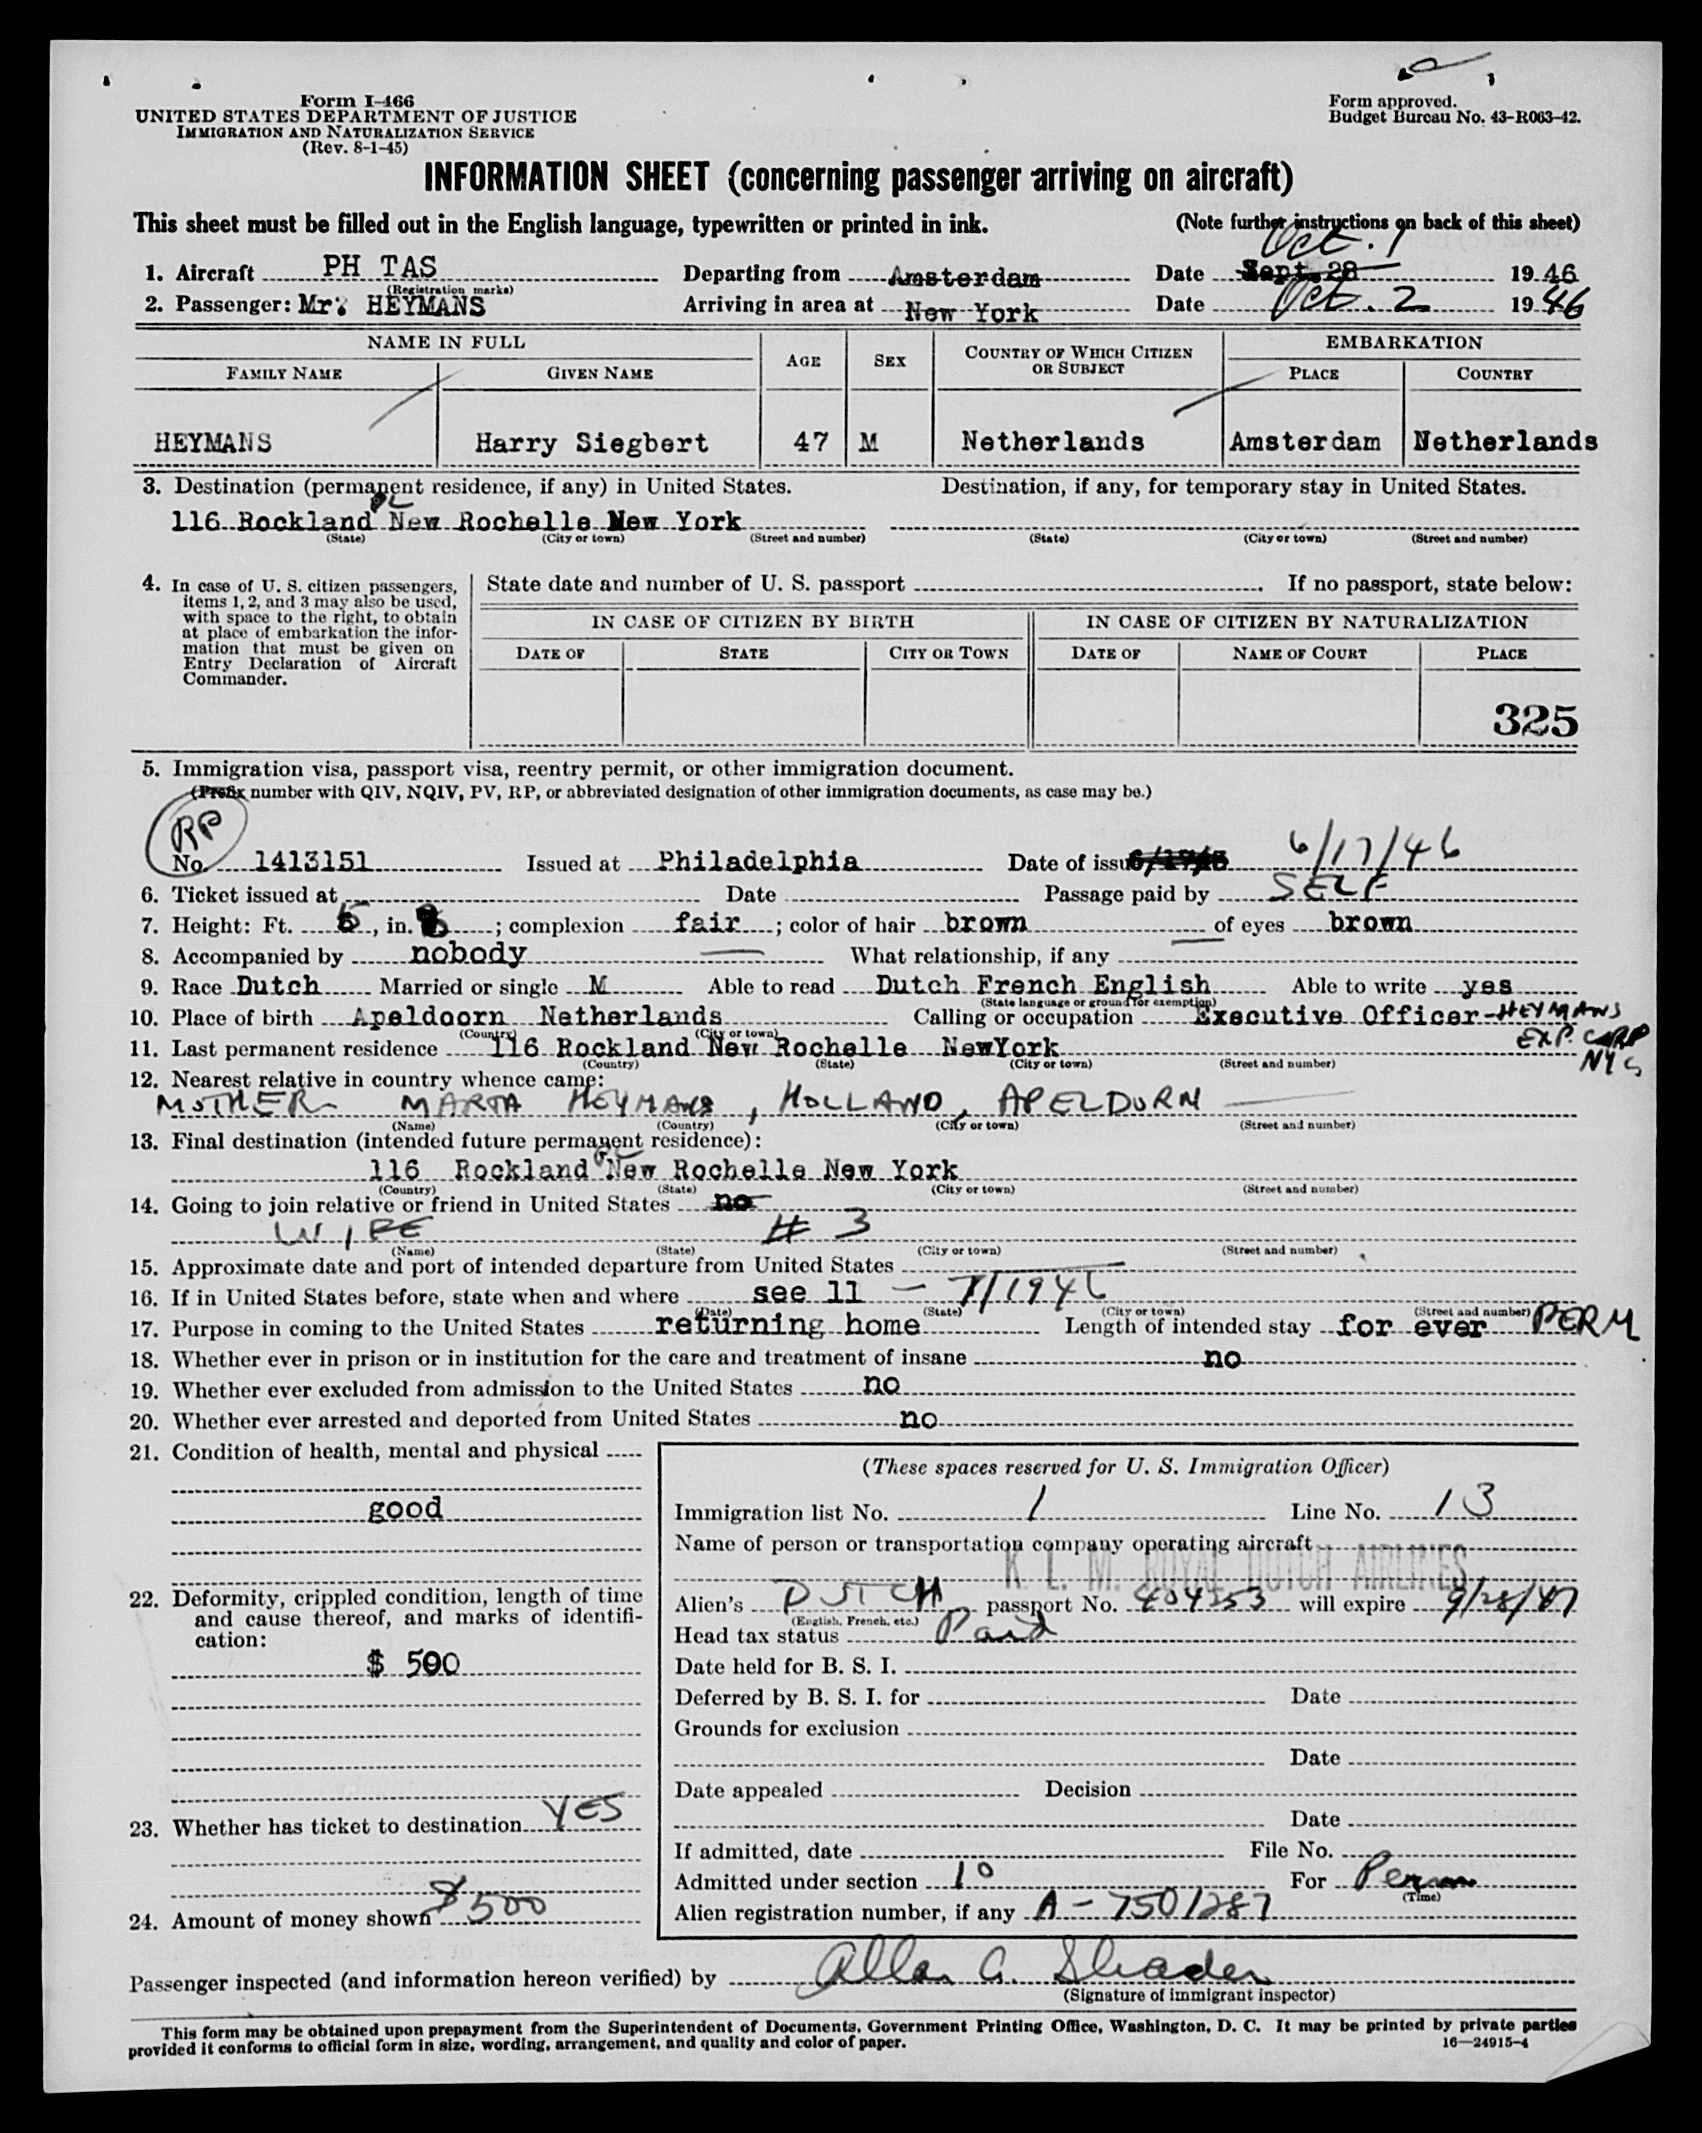 Form I-466
UNITED STATES DEPARTMENT OF JUSTICE
IMMIGRATION AND NATURALIZATION SERVICE
(Rev. 8-1-45)
Form approved.
Budget Bureau No. 43-R063-42.
INFORMATION SHEET (concerning passenger arriving on aircraft)
This sheet must be filled out in the English language, typewritten or printed in ink. (Note further instructions on back of this sheet)
Oct. 1
1. Aircraft PH TAS Departing from Amsterdam Date Sept. 28 1946
(Registration marks)
2. Passenger: Mr: HEYMANS Arriving in area at New York Date Oct. 2 1946
NAME IN FULL AGE SEX COUNTRY OF WHICH CITIZEN OR SUBJECT EMBARKATION
FAMILY NAME GIVEN NAME PLACE COUNTRY
HEYMANS Harry Siegbert 47 M Netherlands Amsterdam Netherlands
3. Destination (permanent residence, if any) in United States. Destination, if any, for temporary stay in United States.
116 Rockland PL New Rochelle New York
(State) (City or town) (Street and number) (State) (City or town) (Street and number)
4. In case of U. S. citizen passengers, items 1, 2, and 3 may also be used, with space to the right, to obtain at place of embarkation the information that must be given on Entry Declaration of Aircraft Commander.
State date and number of U. S. passport . If no passport, state below:
IN CASE OF CITIZEN BY BIRTH IN CASE OF CITIZEN BY NATURALIZATION
DATE OF STATE CITY OR TOWN DATE OF NAME OF COURT PLACE
325
5. Immigration visa, passport visa, reentry permit, or other immigration document.
(Prefix number with QIV, NQIV, PV, RP, or abbreviated designation of other immigration documents, as case may be.)
RP
No. 1413151 Issued at Philadelphia Date of issue 6/17/46
6. Ticket issued at Date Passage paid by SELF
7. Height: Ft. 5, in. ; complexion fair; color of hair brown of eyes brown
8. Accompanied by nobody What relationship, if any
9. Race Dutch Married or single M Able to read Dutch French English Able to write yes
(State language or ground for exemption)
10. Place of birth Apeldoorn Netherlands Calling or occupation Executive Officer - HEYMANS
(Country) (City or town) EXP. CORP
11. Last permanent residence 116 Rockland New Rochelle NewYork NYC
(Country) (State) (City or town) (Street and number)
12. Nearest relative in country whence came:
MOTHER MARTA HEYMANS, HOLLAND, APELDORN
(Name) (Country) (City or town) (Street and number)
13. Final destination (intended future permanent residence):
116 Rockland PL New Rochelle New York
(Country) (State) (City or town) (Street and number)
14. Going to join relative or friend in United States no
WIFE # 3
(Name) (State) (City or town) (Street and number)
15. Approximate date and port of intended departure from United States
16. If in United States before, state when and where see 11 - 7/1946
(Date) (State) (City or town) (Street and number)
17. Purpose in coming to the United States returning home Length of intended stay for ever PERM
18. Whether ever in prison or in institution for the care and treatment of insane no
19. Whether ever excluded from admission to the United States no
20. Whether ever arrested and deported from United States no
21. Condition of health, mental and physical
good
22. Deformity, crippled condition, length of time and cause thereof, and marks of identification:
$ 500
23. Whether has ticket to destination YES
24. Amount of money shown $500
(These spaces reserved for U. S. Immigration Officer)
Immigration list No. 1 Line No. 13
Name of person or transportation company operating aircraft
K. L. M. ROYAL DUTCH AIRLINES
Alien's DUTCH passport No. 404253 will expire 9/28/47
(English, French, etc.)
Head tax status Paid
Date held for B. S. I.
Deferred by B. S. I. for Date
Grounds for exclusion
Date
Date appealed Decision
Date
If admitted, date File No.
Admitted under section 10 For Perm
(Time)
Alien registration number, if any A-7501287
Passenger inspected (and information hereon verified) by Allan A. Shader
(Signature of immigrant inspector)
This form may be obtained upon prepayment from the Superintendent of Documents, Government Printing Office, Washington, D. C. It may be printed by private parties
provided it conforms to official form in size, wording, arrangement, and quality and color of paper. 16—24915-4